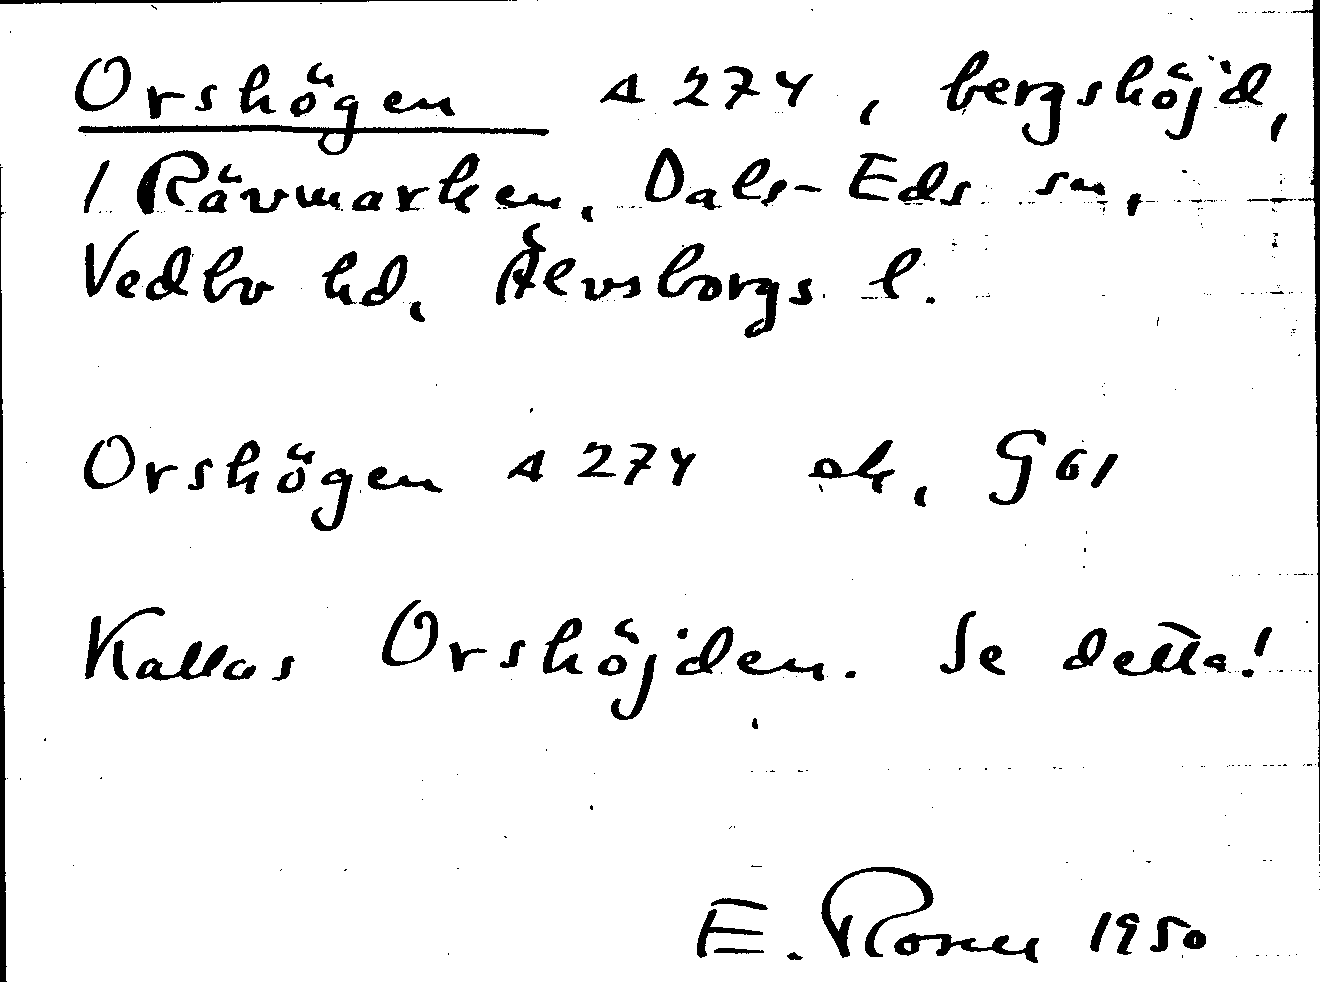 Orshögen △ 274, bergshöjd,
/ Rävmarken, Dals-Eds sn,
Vedbo hd, Älvsborgs l.
Orshögen △ 274 ek, G61
Kallas Orshöjden. Se detta!
E. Rosen 1950